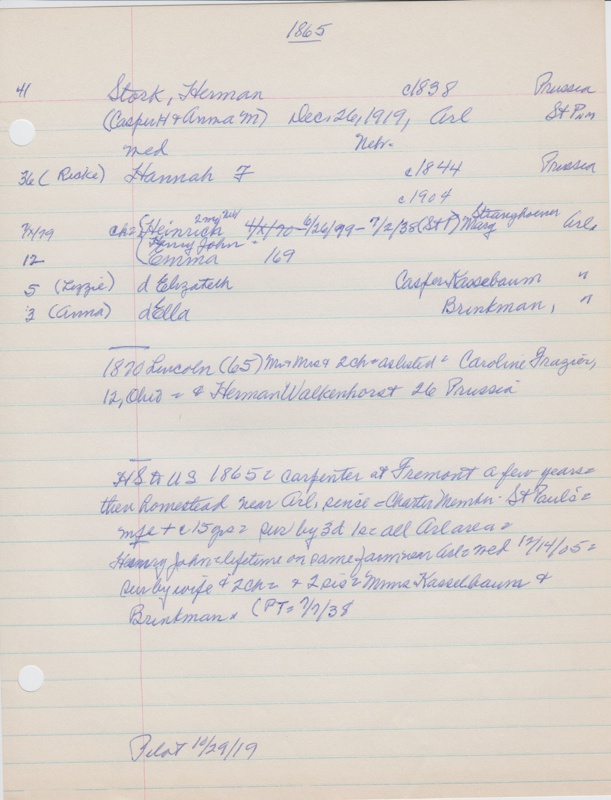 1865
41 Stork, Herman c1838 Prussia
(Casper H & Anna M) Dec. 26, 1919, Arl St P nm
med Nebr.
36 (Ricke) Hannah F c1844 Prussia
c1904
ch= Heinrich 6/26/99 - 7/2/38 (St P) Mary Stranghoener Arl.
Henry John
12 Emma 169
5 (Lizzie) d Elizabeth Casper Kassebaum "
3 (Anna) d Ella Brinkman, "
1870 Lincoln (65) Mr & Mrs & 2 ch = as listed = Caroline Frazier,
12, Ohio = & Herman Walkenhorst 26 Prussia
HS to US 1865 = carpenter at Fremont a few years =
then homestead near Arl. since = Charter Member St Paul's =
c 15 yrs = sur by 3d 1s = all Arl area =
Henry John = lifetime on same farm near Arl = med 12/14/05 =
sur by wife & 2 ch = & 2 sis = Mmes Kasselbaum &
Brinkman. (PT = 7/7/38
Pilot 12/29/19